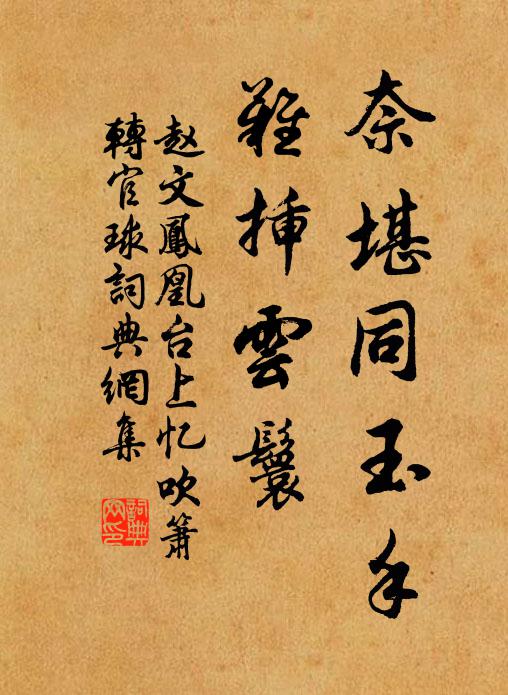 奈堪同玉手
難插雲鬟
赵文鳳凰台上忆吹簫
轉官球詞典網集
詞典网印